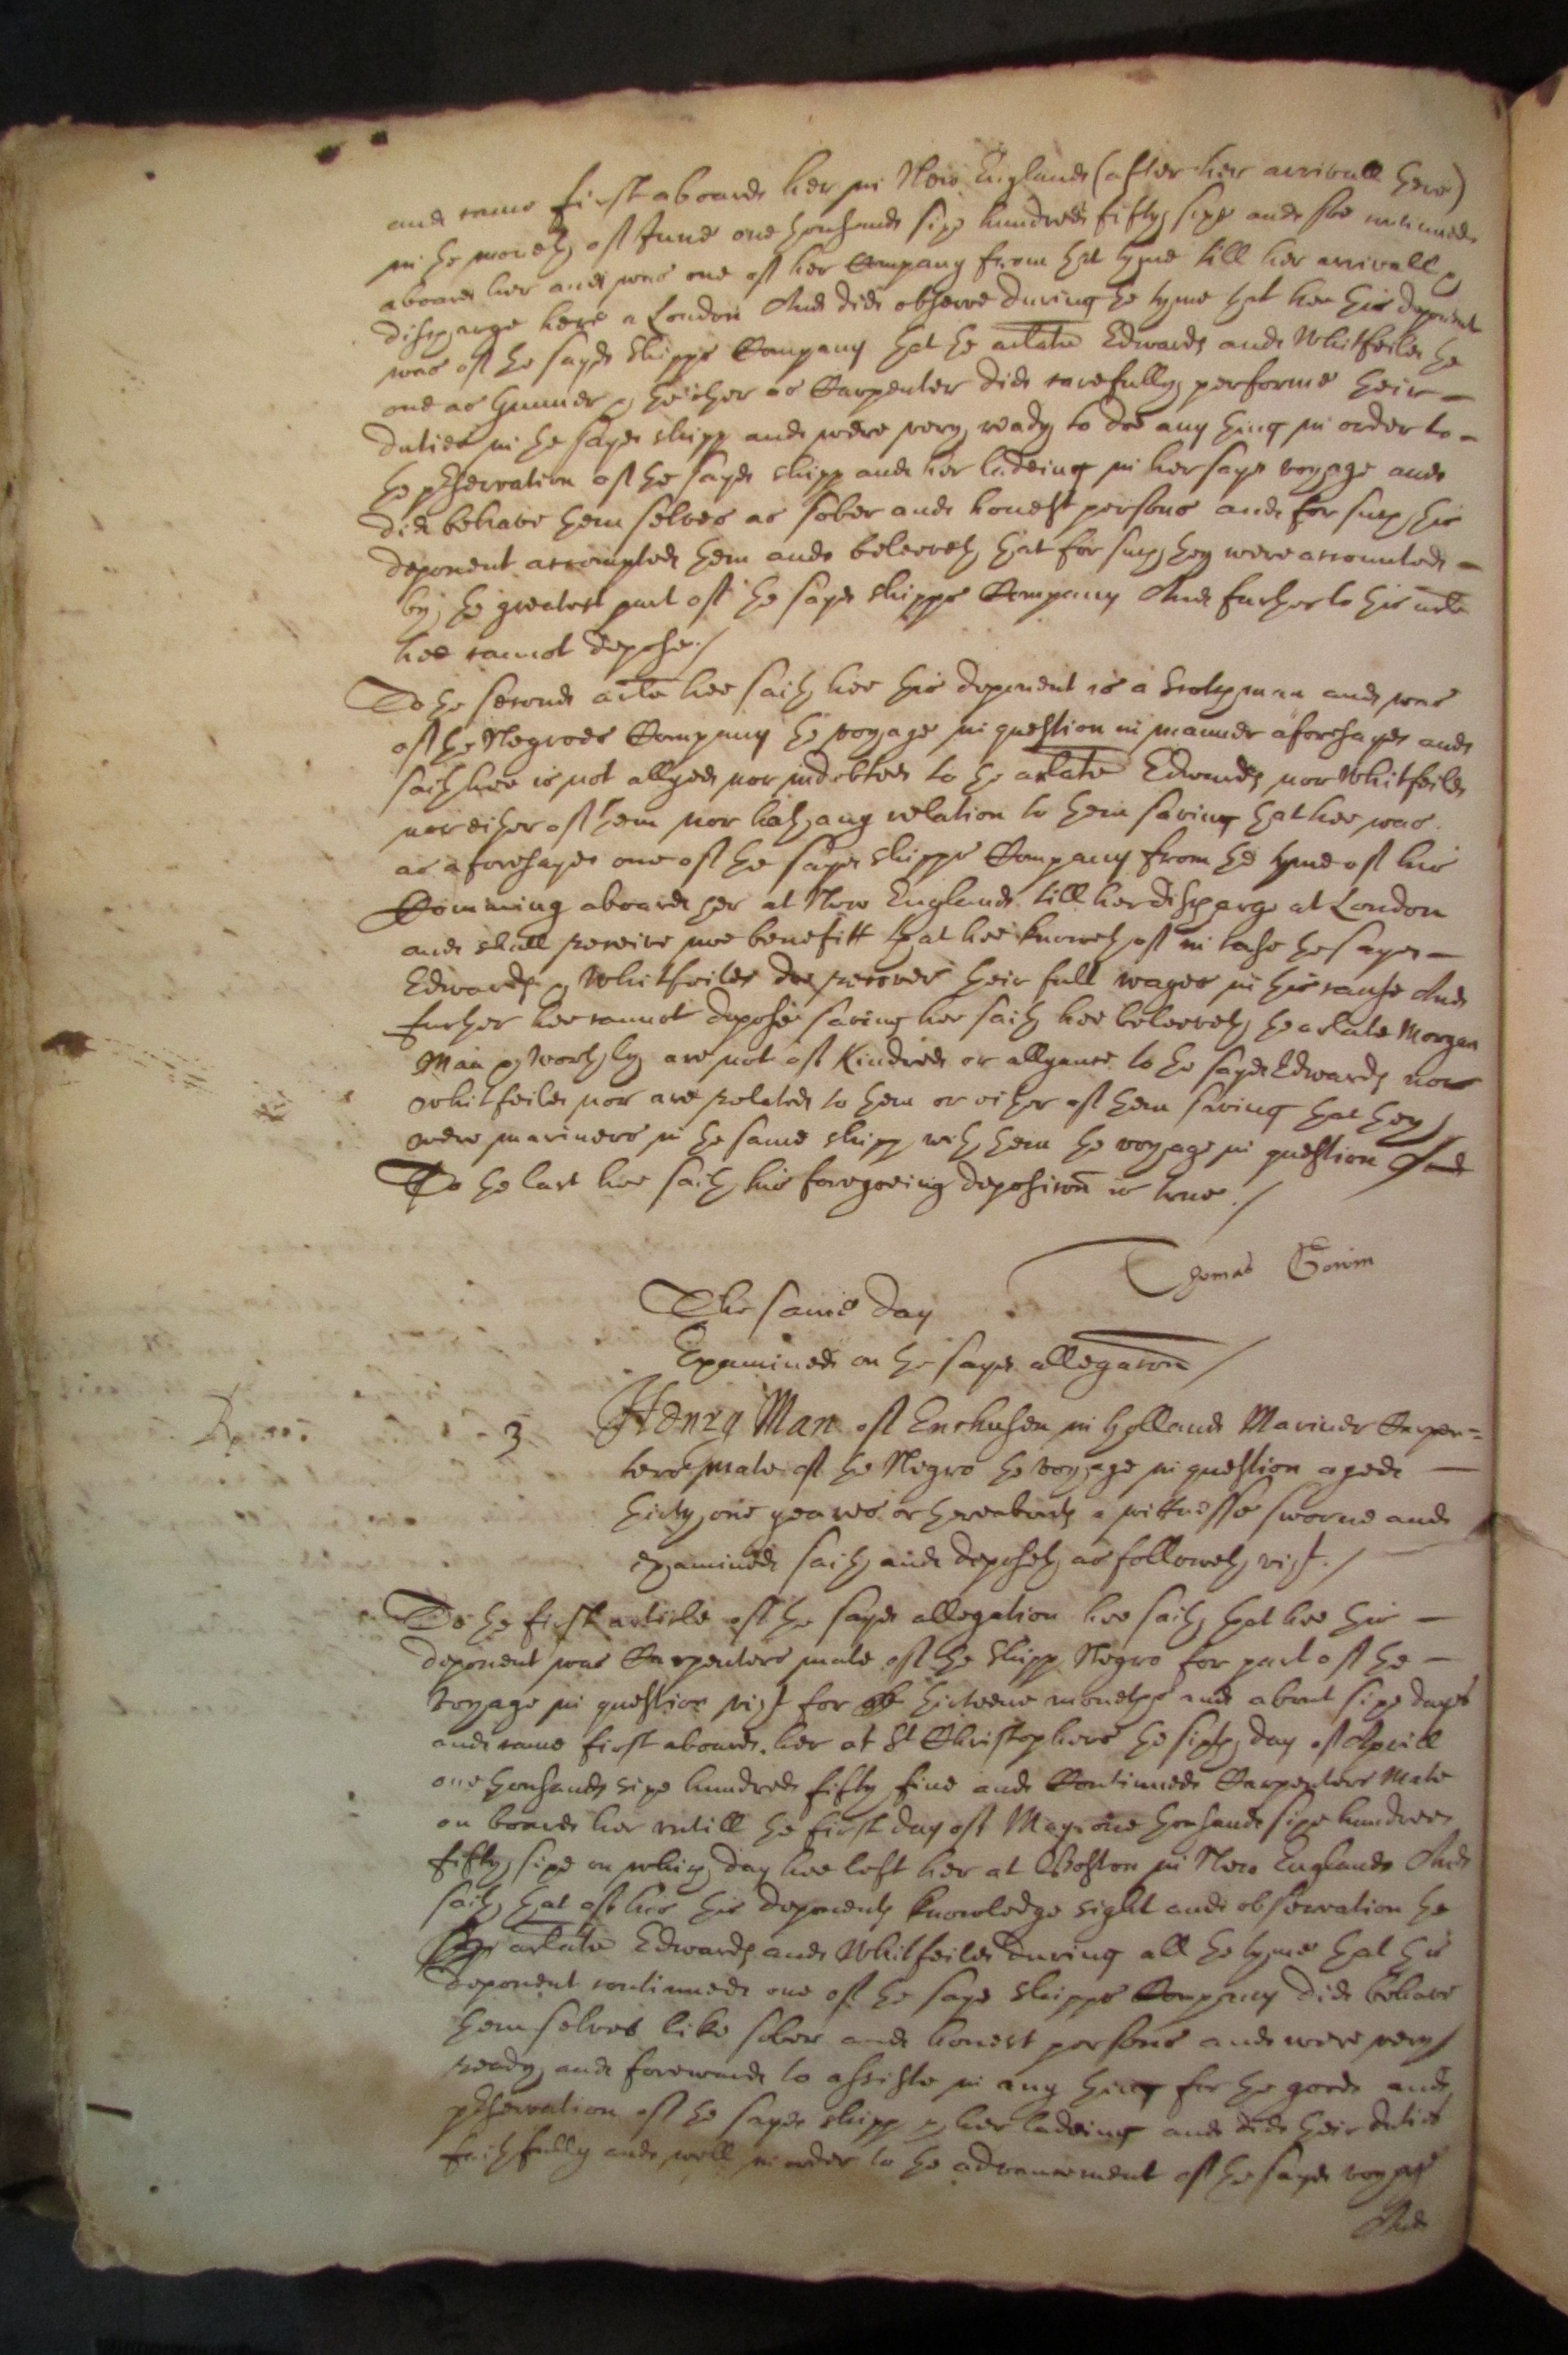 and came first aboard her in New England (after her arrivall there)
in the moneth of June one thousand sixe hundred fifty sixe and soe continued
aboard her and was one of her Company from that tyme till her arrivall &
discharge here at London And did observe during the tyme that hee this deponent
was of the sayd shipps Company that the arlate Edwards and Whitfeild the
one as Gunner & the other as Carpenter did carefully performe their -
duties in the sayd shipp and were very ready to doe any thing in order to -
the pservation of the sayd shipp and her ladeing in her sayd voyage and
did behave them selves as sober and honest persons and for such this
deponent accompted them and beleeveth that for such they were accounted -
by the greatest part of the sayd shipps Company And further to this arle
hee cannot depose./
To the second arle hee saith hee this deponent is a Scotchman and was
of the Negroes Company the voyage in question in manner aforesayd and
saith hee is not allyed nor indebted to the arlate Edwards nor Whitfeild
nor either of them nor hath any relation to them saving that hee was
as aforesayd one of the sayd shipps Company from the tyme of his
Comming aboard her at New England till her discharge at London
and shall receive noe benefitt that hee knoweth of in case the sayd -
Edwards & Whitfeild doe recover their full wages in this cause And
further hee cannot depose saving hee saith hee beleeveth the arlate Morgan
Man & Worthyly are not of Kindred or allyance to the sayd Edwards nor
Whitfeild nor are related to them or either of them saving that they
were mariners in the same shipp with them the voyage in question And
To the last hee saith his foregoeing deposicon is true./
Thomas Gowin
The same day
Examined on the sayd allegacon/
3 Henry Man of Enchusen in Holland Mariner Carpen=
ters mate of the Negro the voyage in question aged -
thirty one yeares or thereabouts a wittnesse sworne and
examined saith and deposeth as followeth vizt./
To the first article of the sayd allegation hee saith that hee this -
deponent was Carpenters mate of the shipp Negro for part of the -
voyage in question vizt for thirteene moneths and about sixe dayes
and came first aboard her at St Christophers the sixth day of Aprill
one thousand sixe hundred fifty five and Continued Carpenters Mate
on board her untill the first day of May one thousand sixe hundred
fifty sixe on which day hee left her at Boston in New England And
saith that of his this deponents knowledge sight and observation the
arlate Edwards and Whitfeild during all the tyme that this
deponent continued one of the sayd shipps Company did behave
them selves like sober and honest persons and were very
ready and foreward to assiste in any thing for the good and
pservation of the sayd shipp & her ladeing and did their duties
faithfully and well in order to the advancement of the sayd voyage
And